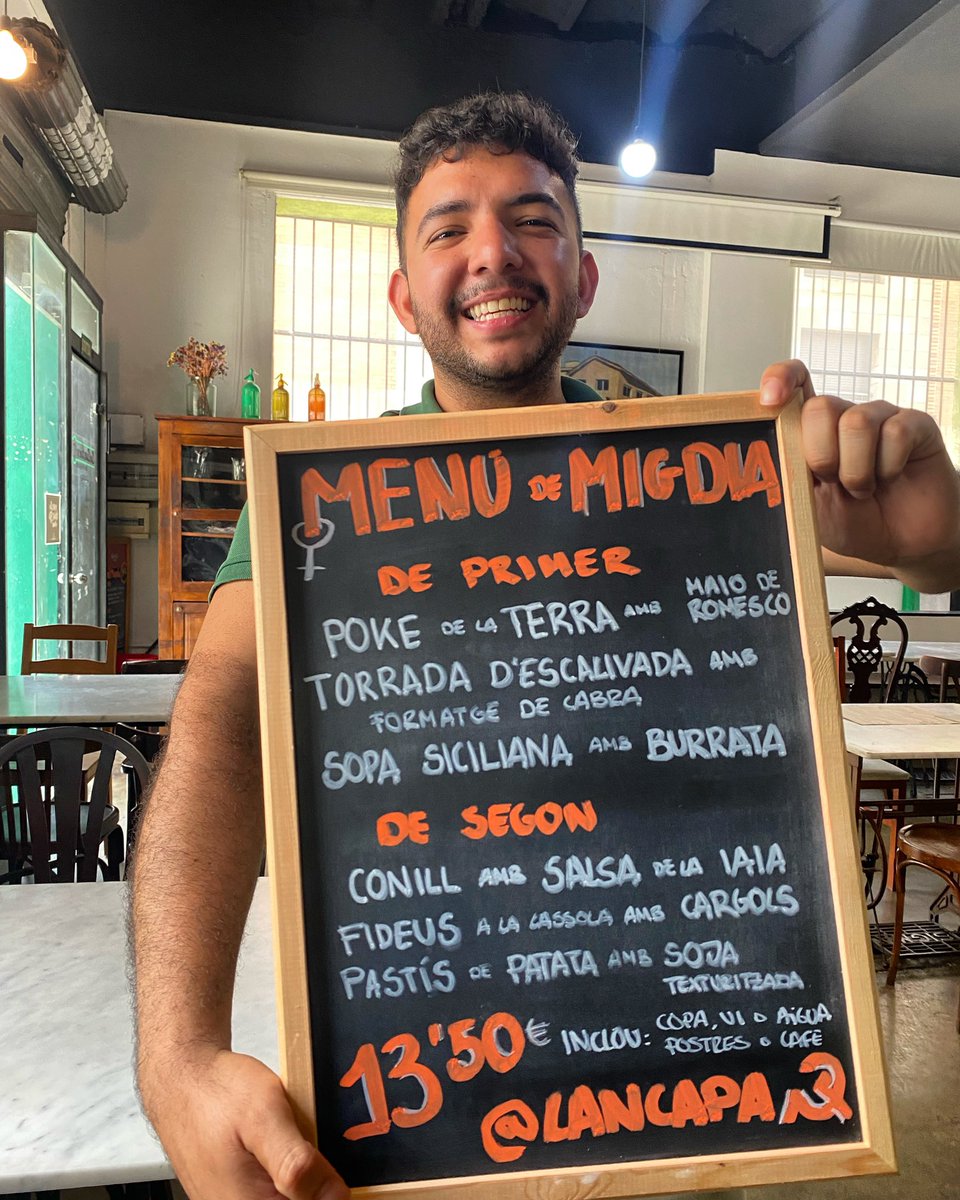 MENÚ DE MIGDIA
DE PRIMER
POKE DE LA TERRA AMB MAIO DE ROMESCO
TORRADA D'ESCALIVADA AMB
FORMATGE DE CABRA
SOPA SICILIANA AMB BURRATA
DE SEGON
CONILL AMB SALSA DE LA IAIA
FIDEUS A LA CASSOLA AMB CARGOLS
PASTÍS DE PATATA AMB SOJA
TEXTURITZADA
13'50€ INCLOU: COPA, VI O AIGUA
POSTRES O CAFÈ
@LANCAPA